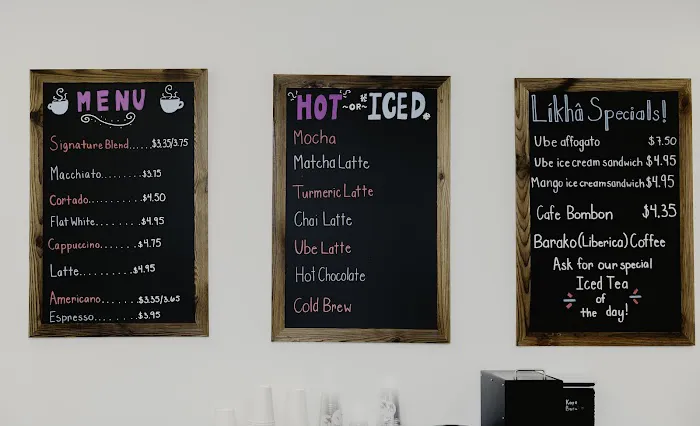 MENU
Signature Blend.....$3.35/3.75
Macchiato.........$3.75
Cortado..........$4.50
Flat White..........$4.95
Cappuccino.......$4.75
Latte..........$4.95
Americano.......$3.35/3.65
Espresso........$3.95
HOT -OR- ICED
Mocha
Matcha Latte
Turmeric Latte
Chai Latte
Ube Latte
Hot Chocolate
Cold Brew
Líkhâ Specials!
Ube affogato $7.50
Ube ice cream sandwich $4.95
Mango ice cream sandwich $4.95
Cafe Bombon $4.35
Barako (Liberica) Coffee
Ask for our special
Iced Tea
of
the day!